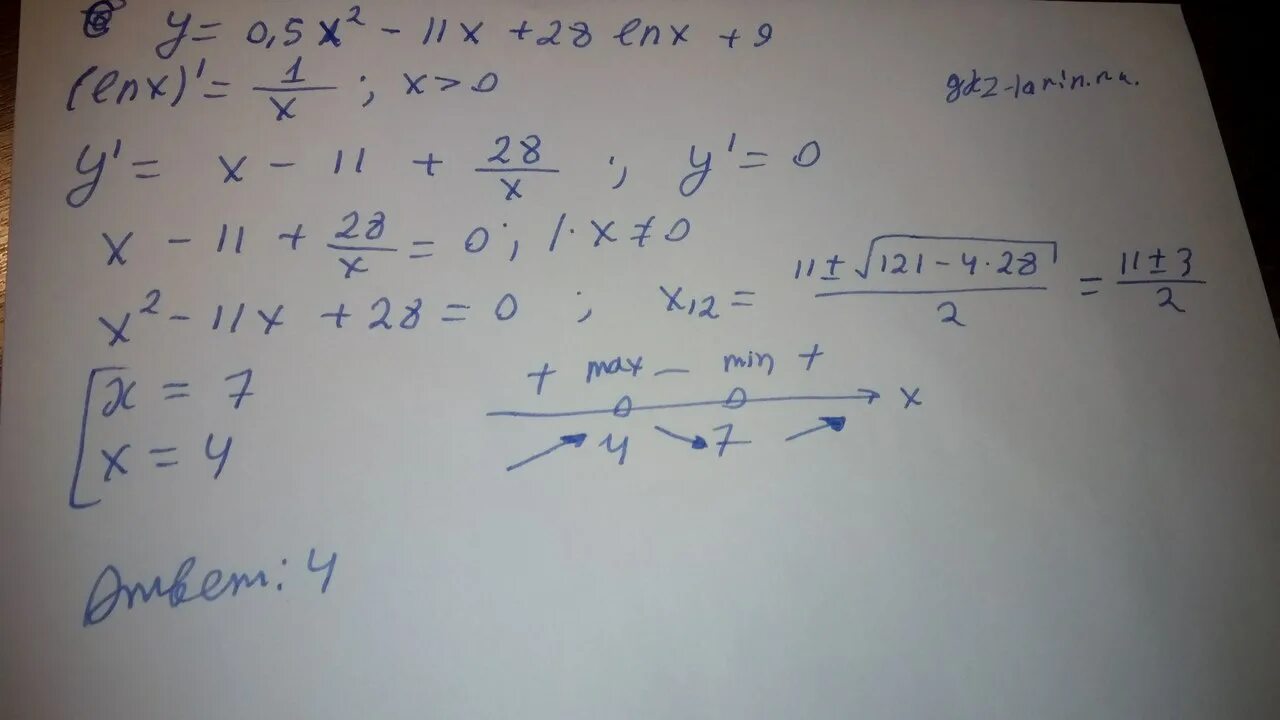 y = 0,5x² - 11x + 28 lnx + 9
(lnx)' = 1/x ; x > 0
gdz-larin.ru.
y' = x - 11 + 28/x ; y' = 0
x - 11 + 28/x = 0 ; | · x ≠ 0
x² - 11x + 28 = 0 ; x₁,₂ = (11 ± √(121 - 4·28))/2 = (11 ± 3)/2
[ x = 7
x = 4
+ max - min + x
4 7
Ответ: 4